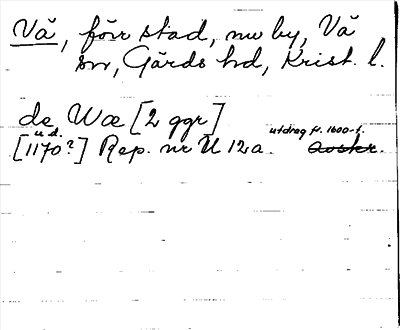 Vä, förr stad, nu by, Vä
sn, Gärds hd, Krist. l.
de Wæ [2 ggr]
u.d. utdrag fr. 1600-t.
[1170?] Rep. nr U 12a. Avskr.